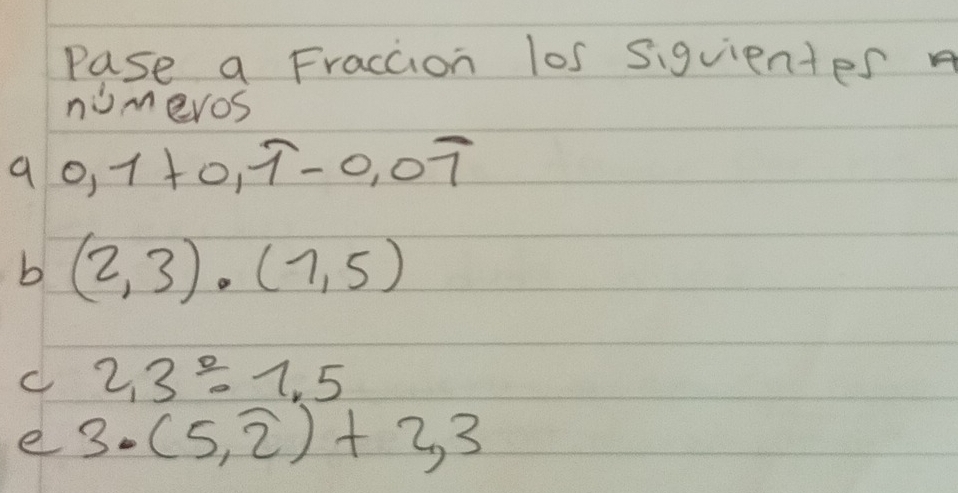 Pase a Fracción los siguientes
números
a 0,1 + 0,1̂ - 0,01̅
b (2,3) . (1,5)
c 2,3 ÷ 1,5
e 3 . (5,2̂) + 2,3